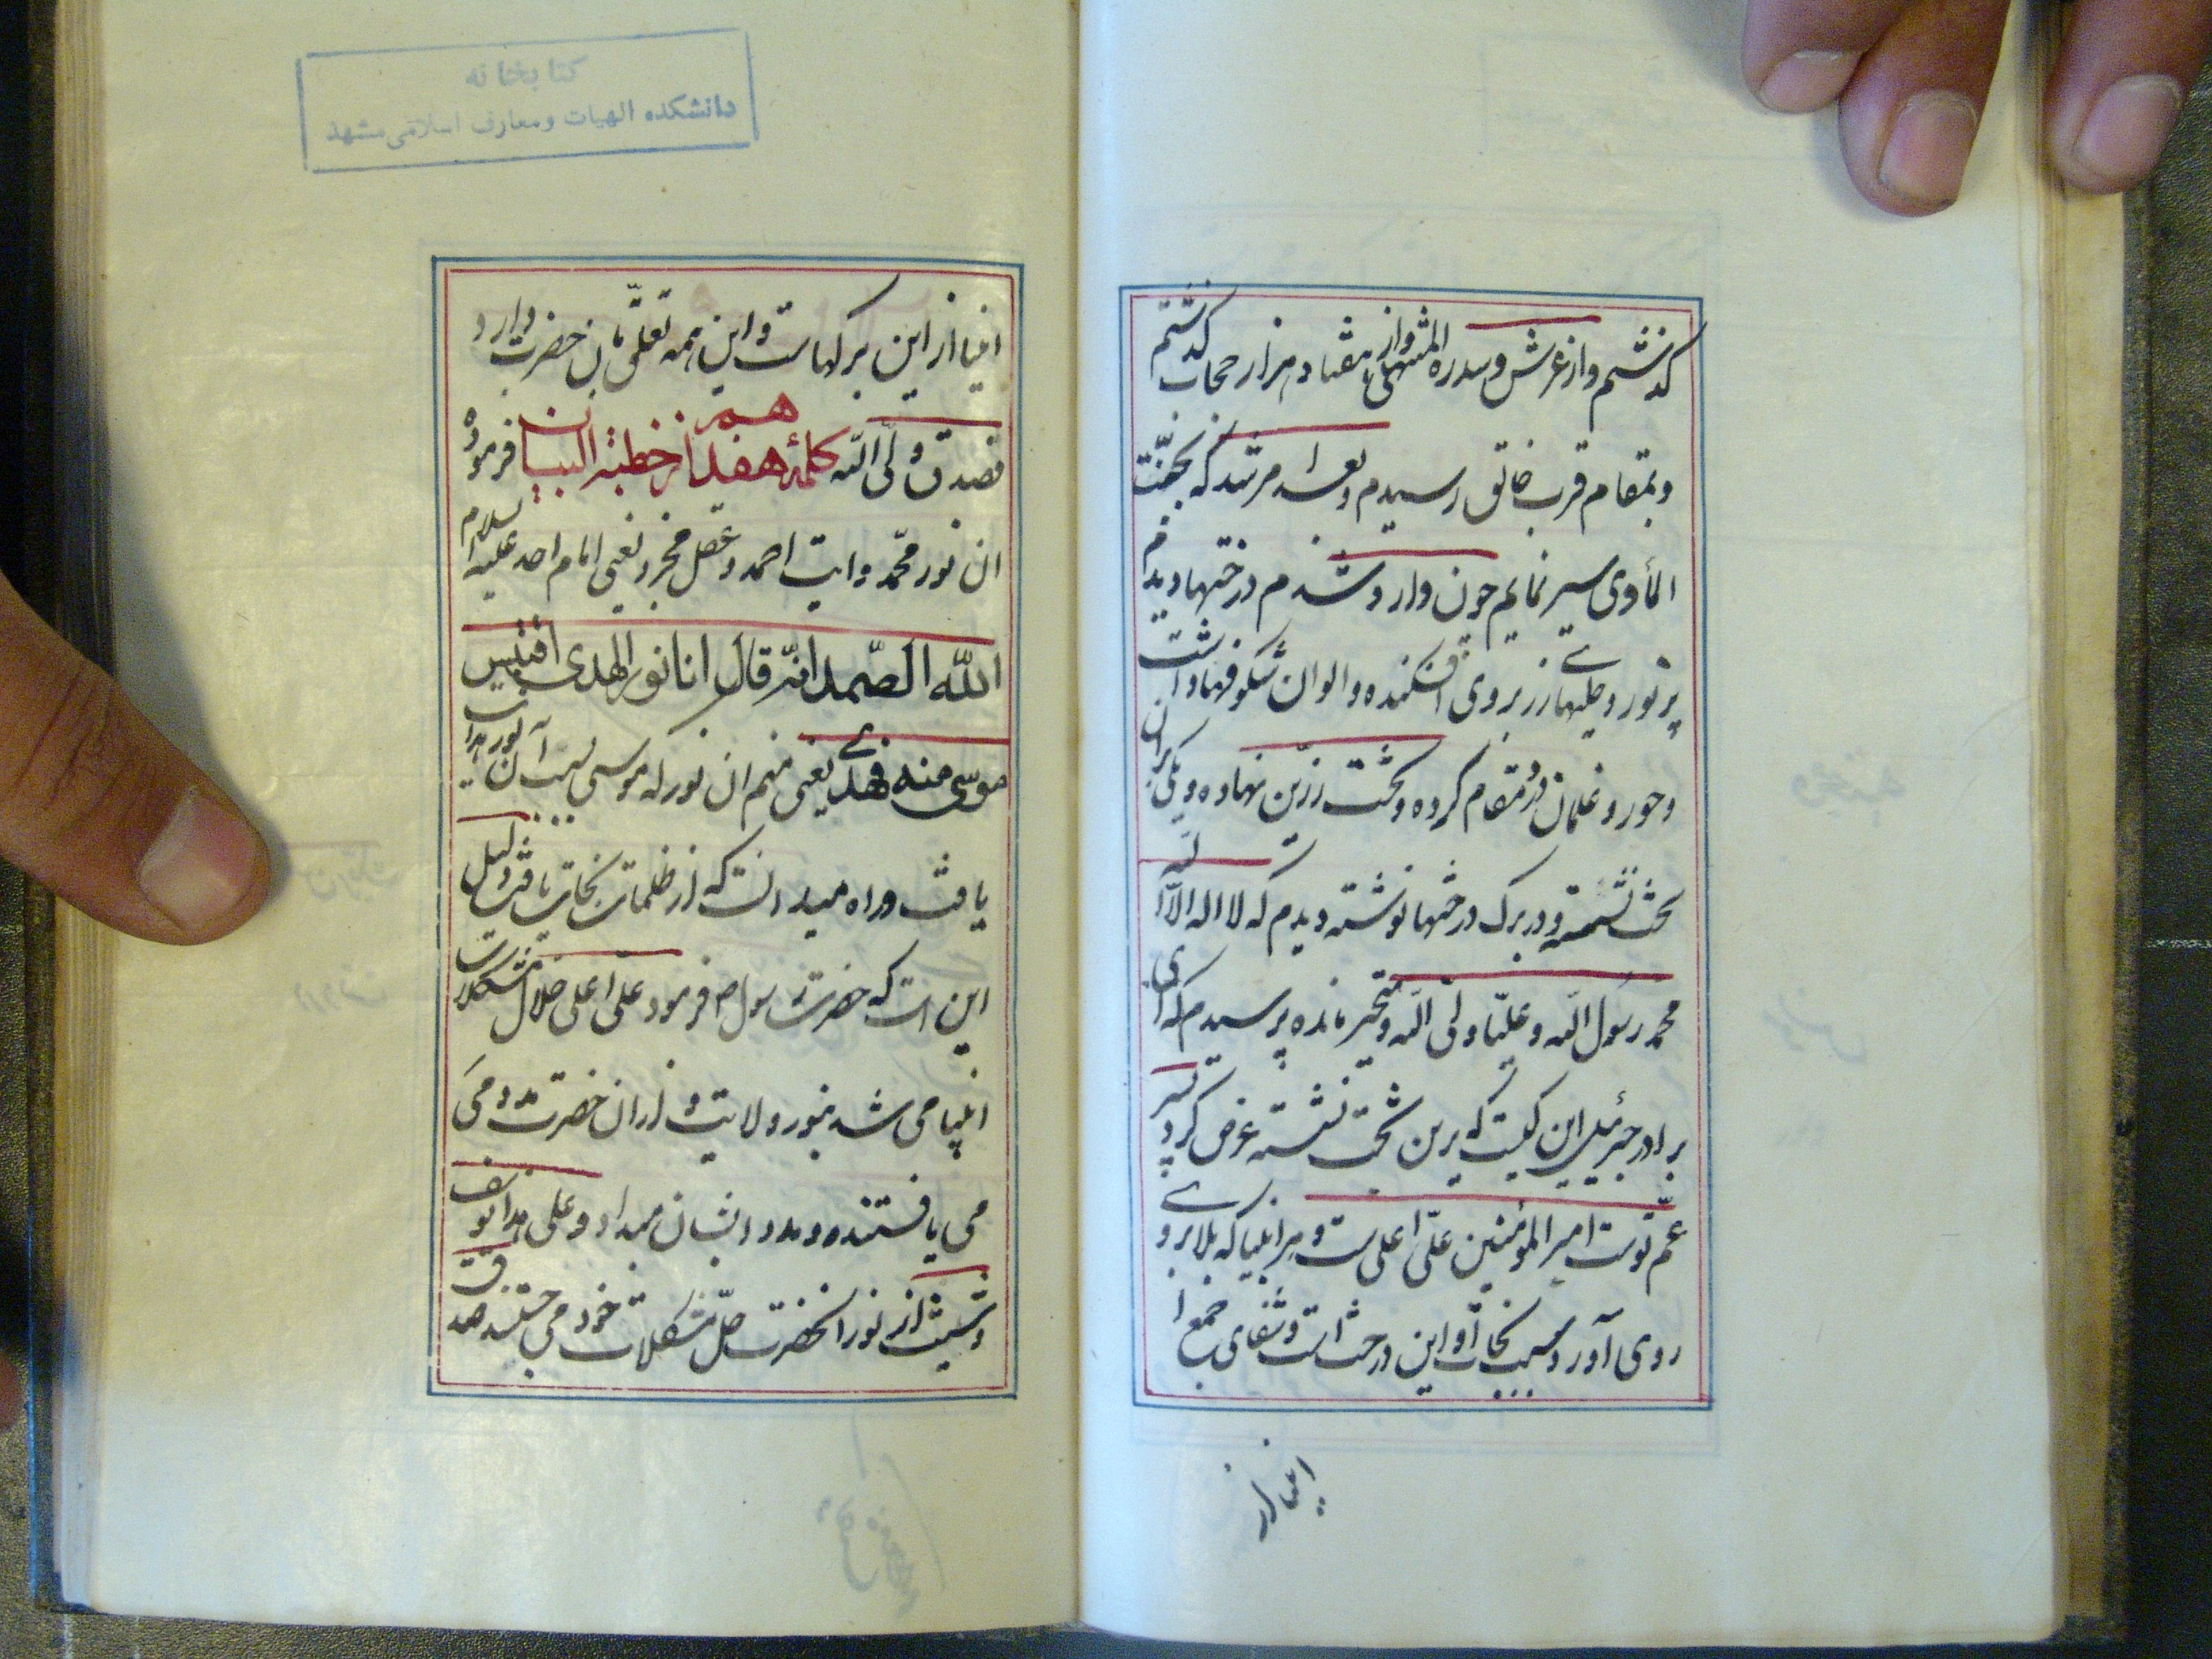 کذشتم واز عرش و سدره المنتهی واز هفتاد هزار حجاب کذشتم
و بمقام قرب خالق رسیدم و بعد امر شد که بجنّت
المأوی سیر نمایم چون وارد شدم درختها دیدم
پر نور و حلیها زر بروی افکنده و الوان شکوفها داشت
و حور و غلمان در مقام کرده و تخت زرّین نهاده و یکی بران
تخت نشسته و در برک درختها نوشته دیدم که لا اله الّا الله
محمد رسول الله و علیّا ولیّ الله متحیر مانده پرسیدم که ای
برادر جبرئیل این کیست که برین تخت نشسته عرض کرد پسر
عمّ توست امیر المؤمنین علیّ اعلی است و هر انبیا که بلا برو
روی آورد سبب نجات او این درخت است و شفای جمع ا
انبیا از
کتابخانه
دانشکده الهیات و معارف اسلامی مشهد
انبیا از این برکهاست و این همه تعلّق بان حضرت دارد
فصدق ولیّ الله کلمهٔ هفدهم از خطبة البیان فرموده
ان نور محمّد و ایت احمد و عقل مجرد یعنی امام احد علیه السلام
الله الصّمد انّه قال انا نور الهدی اقتبس
موسی منه فهدی یعنی منم ان نور که موسی ... از آن نور هدایت
یافت و راه میدانست که از ظلمات نجات یافت و دلیل
این است که حضرت رسول ص فرمود علی اعلی حلال مشکلات
انبیا می شد بنور ولایت و از ان حضرت مدد می
می یافتند و مدد ایشان میداد و علی هذا نوف
و شیث از نور انحضرت حلّ مشکلات خود می جستند صدق